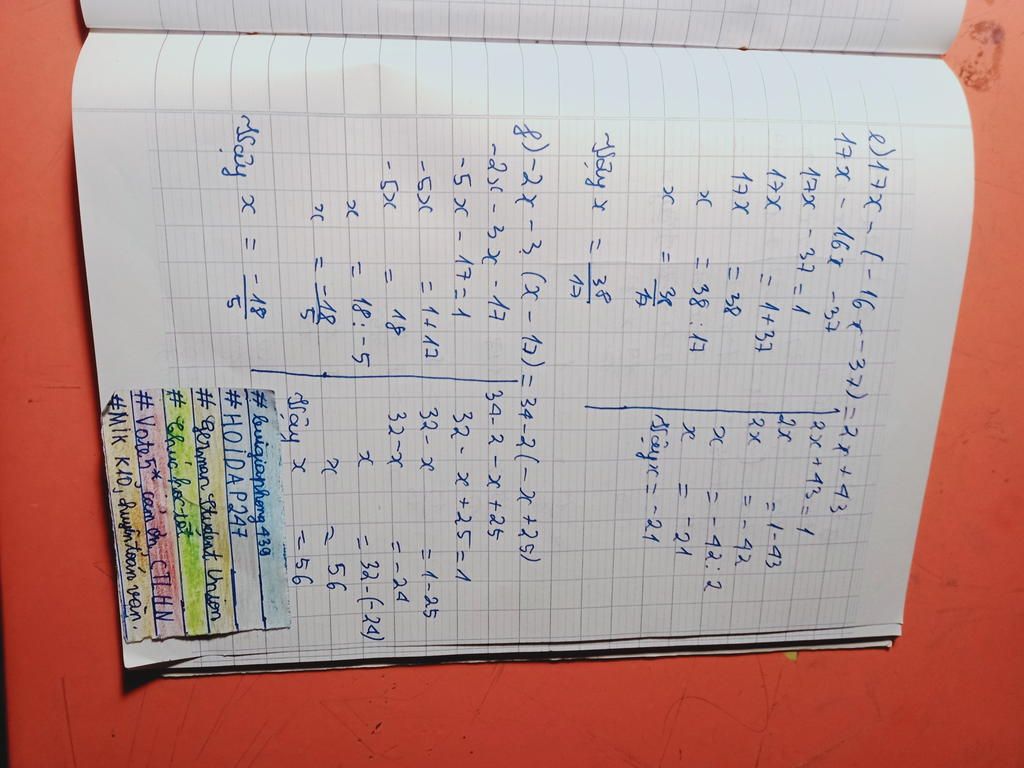 e) 17x - (-16x - 37) = 2x + 43
17x - 16x - 37
17x - 37 = 1
17x = 1 + 37
17x = 38
x = 38 : 17
x = 38/17
Vậy x = 38/17
2x + 43 = 1
2x = 1 - 43
2x = -42
x = -42 : 2
x = -21
Vậy x = -21
f) -2x - 3 (x - 17) = 34 - 2(-x + 25)
-2x - 3x - 17
-5x - 17 = 1
-5x = 1 + 17
-5x = 18
x = 18 : -5
x = -18/5
Vậy x = -18/5
34 - 2 - x + 25
32 - x + 25 = 1
32 - x = 1 - 25
32 - x = -24
x = 32 - (-24)
x = 56
Vậy x = 56
# buigiaphong439
# HOIDAP247
# German Student Union
# Chúc học tốt
# Vote 5* cảm ơn CTLHN
# Mik k